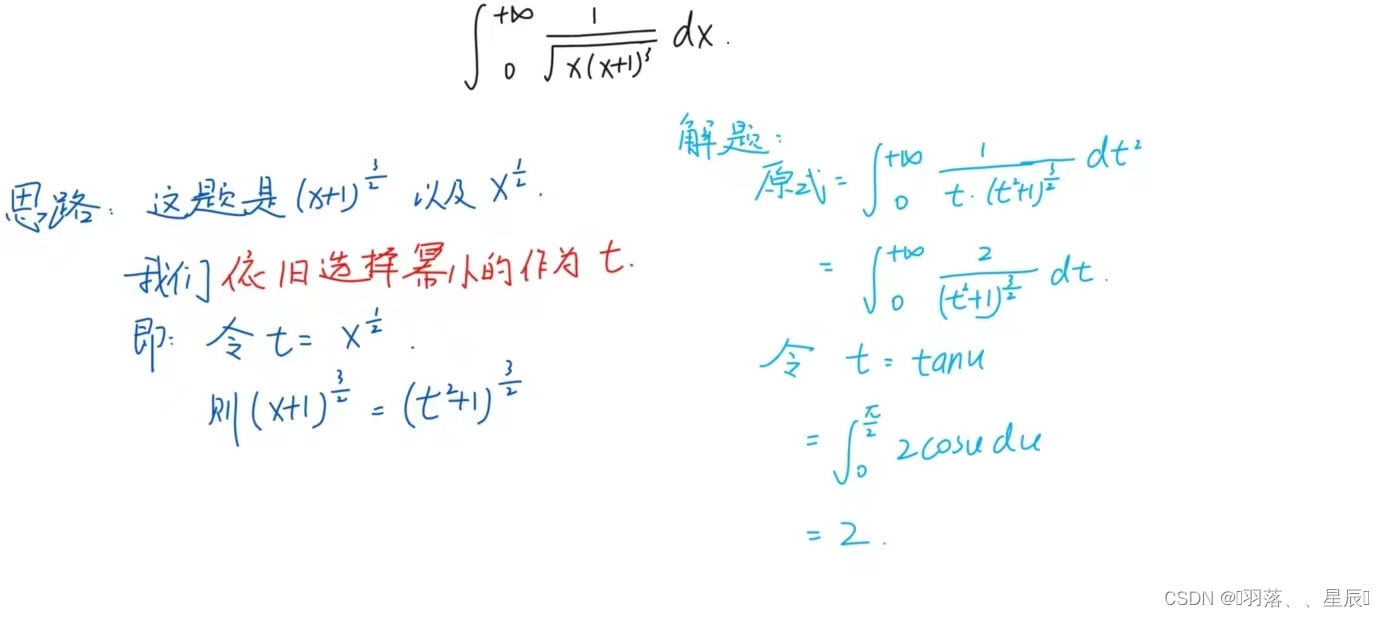 ∫₀^{+∞} 1/√(x(x+1)³) dx.
思路: 这题是 (x+1)^{3/2} 以及 x^{1/2}.
我们依旧选择幂小的作为 t.
即: 令 t = x^{1/2}.
则 (x+1)^{3/2} = (t²+1)^{3/2}
解题:
原式 = ∫₀^{+∞} 1/(t·(t²+1)^{3/2}) dt²
= ∫₀^{+∞} 2/(t²+1)^{3/2} dt.
令 t = tanu
= ∫₀^{π/2} 2cosu du
= 2.
CSDN @羽落、、星辰